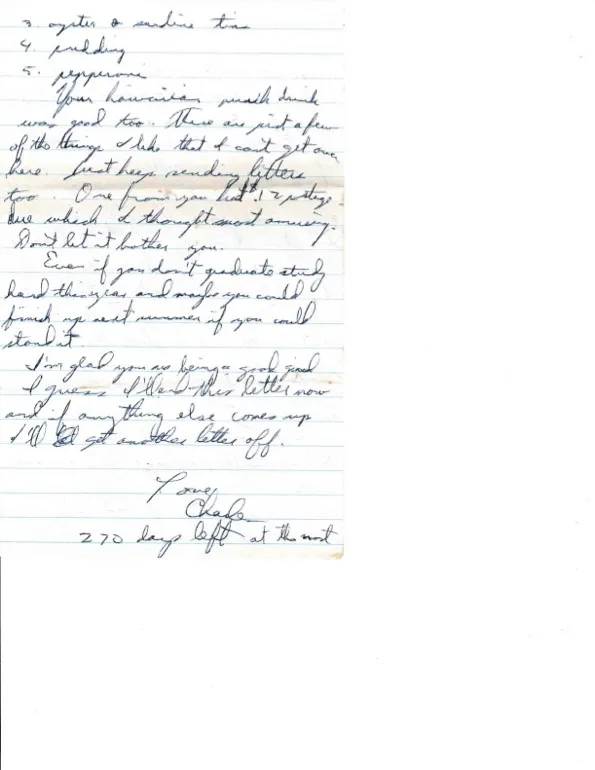 3. oyster & sardine tins
4. pudding
5. pepperoni
Your hawaiian punch drink
was good too. These are just a few
of the things I like that I can't get over
here. Just keep sending letters
too. One from you had $.12 postage
due which I thought most amusing.
Don't let it bother you.
Even if you don't graduate study
hard this year and maybe you could
finish up next summer if you could
stand it.
I'm glad you are being a good girl
I guess I'll end this letter now
and if anything else comes up
I'll get another letter off.
Love,
270 days left at the most